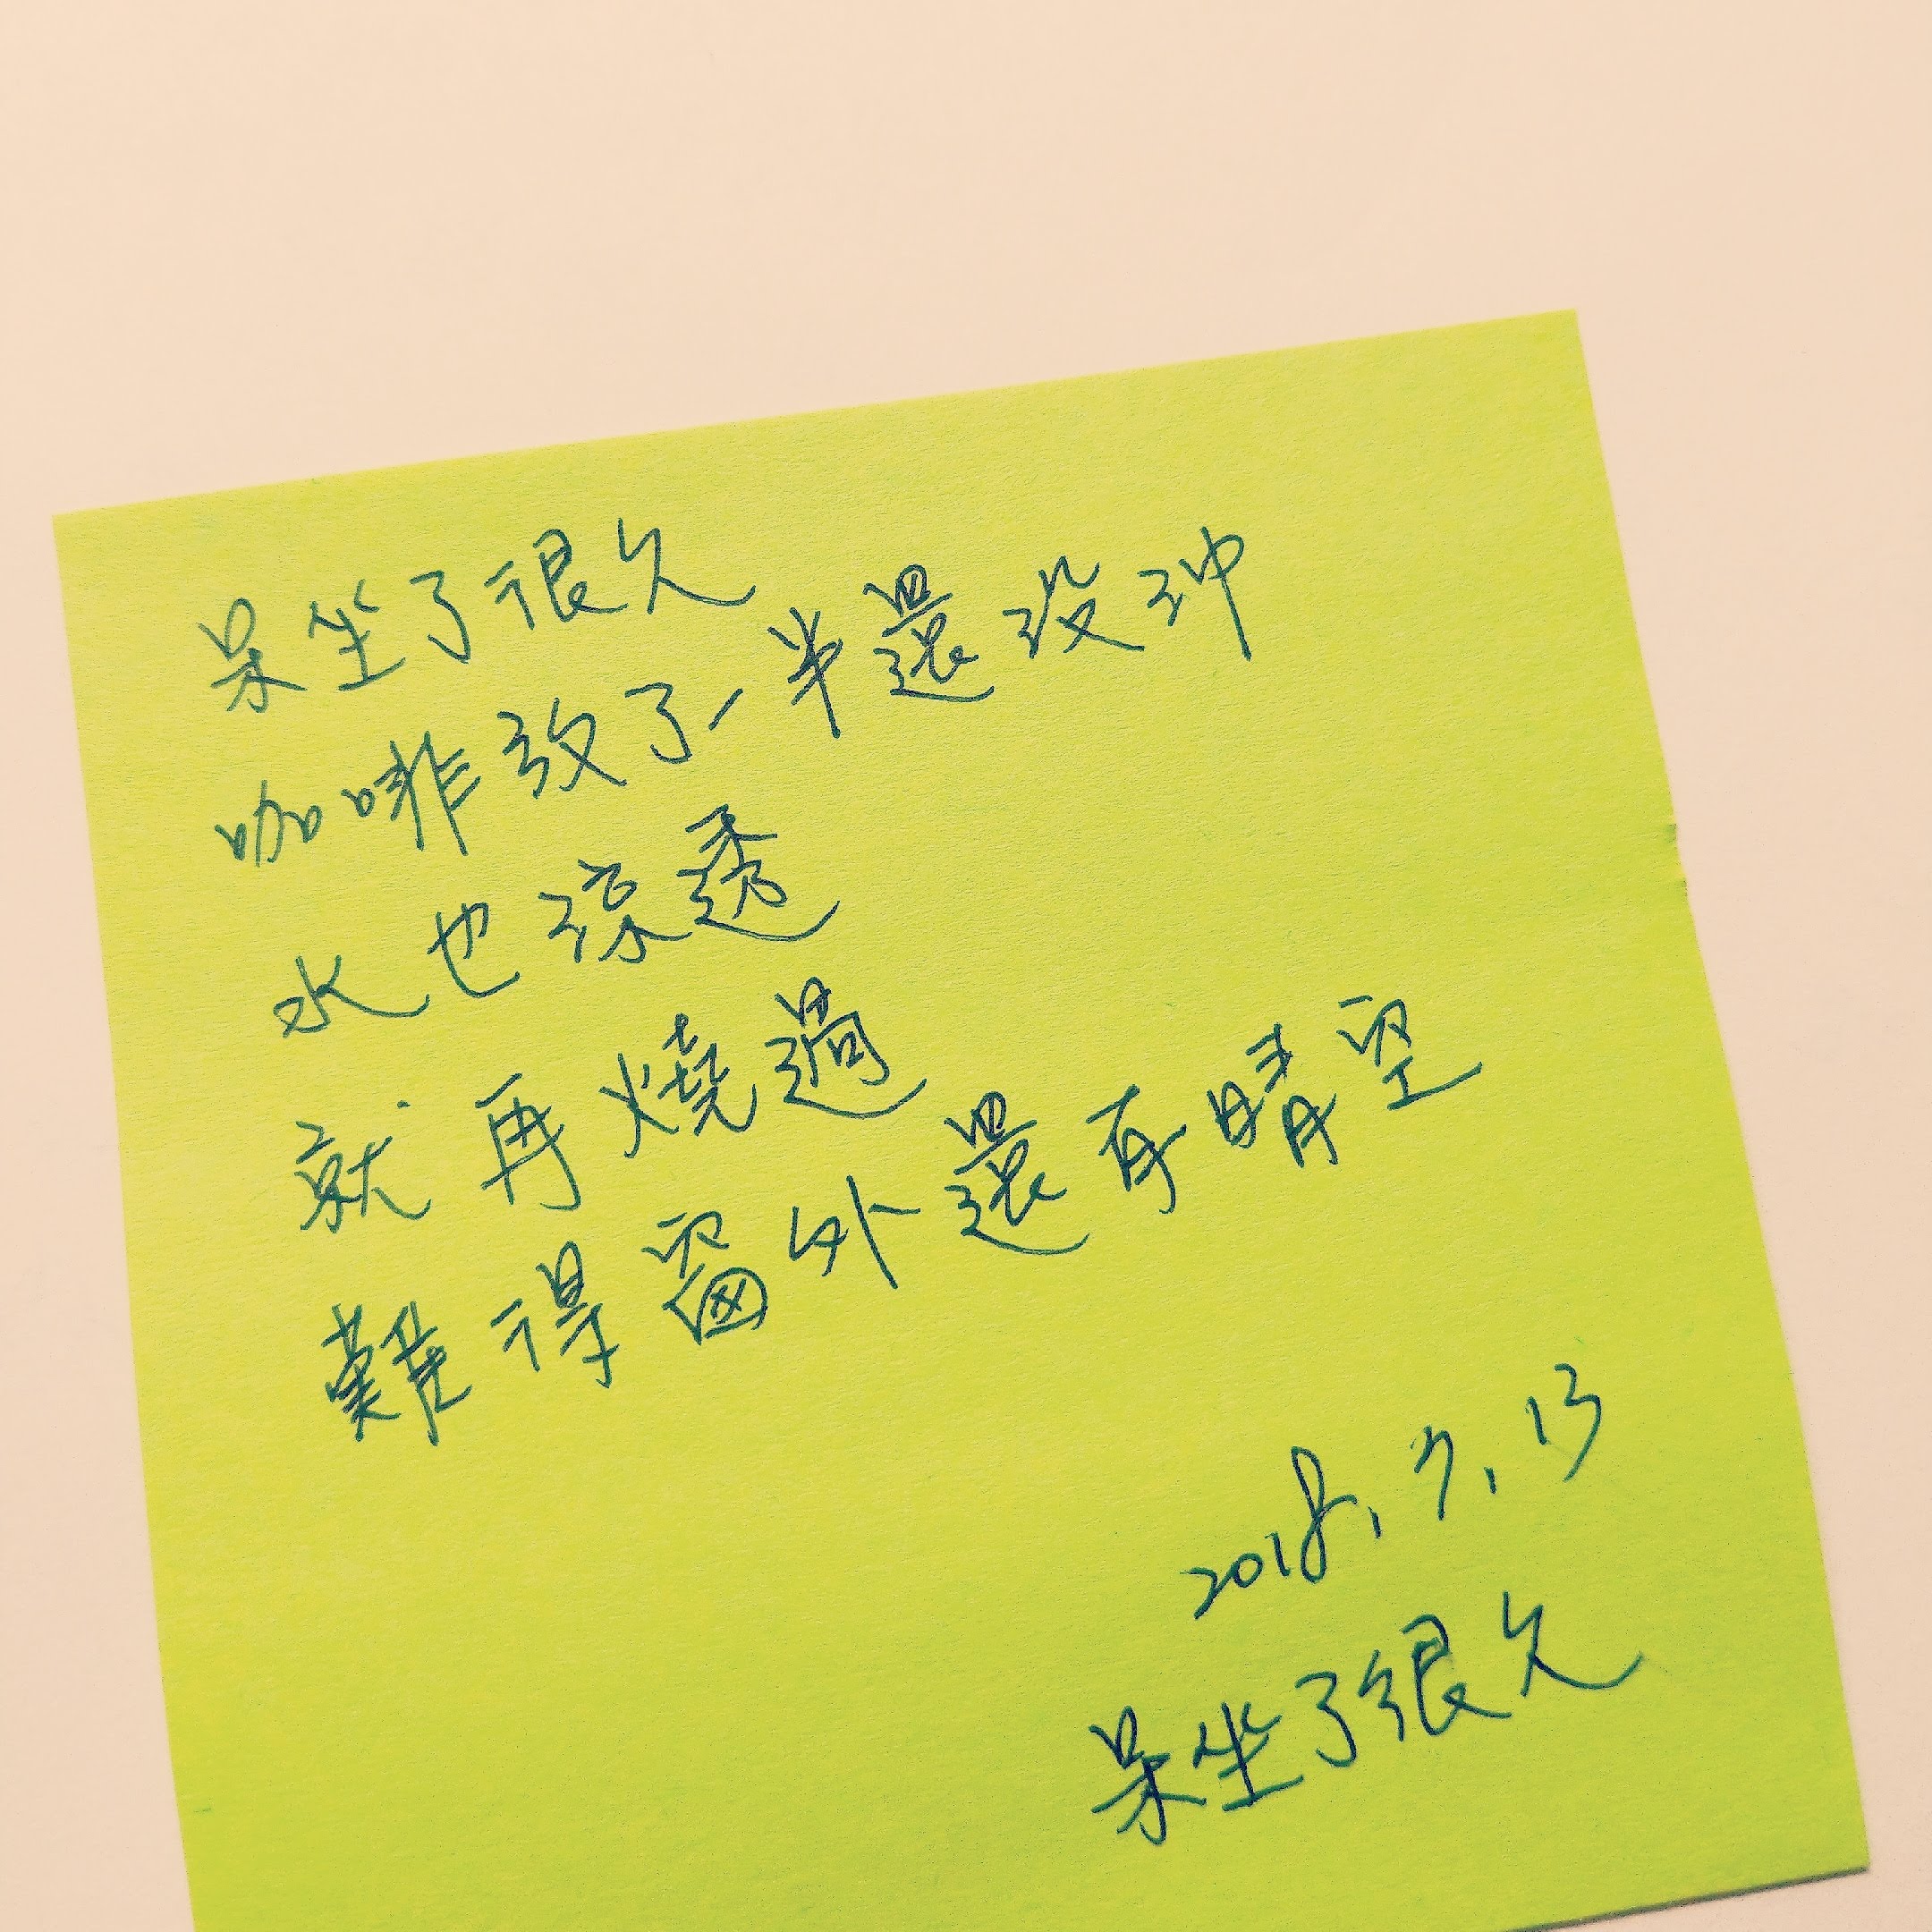 呆坐了很久
咖啡放了一半還沒沖
水也涼透
就再燒過
難得窗外還有晴空
2018.9.13
呆坐了很久